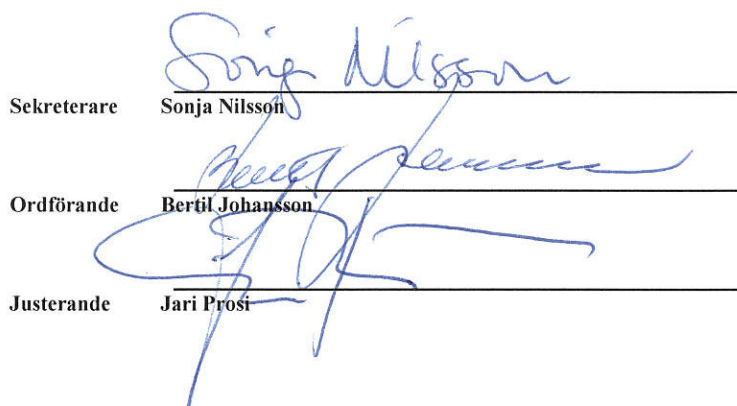 Sonja Nilsson
Sekreterare Sonja Nilsson
Ordförande Bertil Johansson
Justerande Jari Prosi